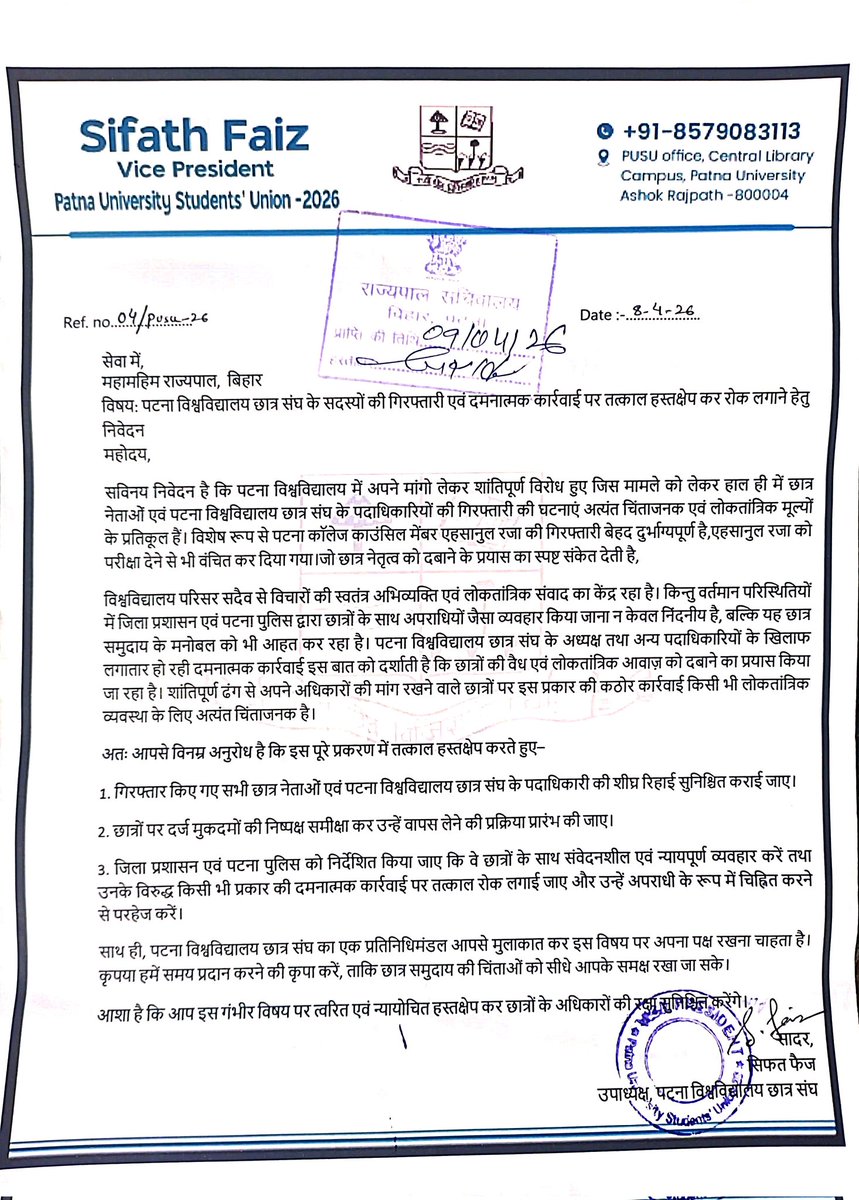 Sifath Faiz
Vice President
Patna University Students' Union -2026
+91-8579083113
PUSU office, Central Library
Campus, Patna University
Ashok Rajpath -800004
राज्यपाल सचिवालय
बिहार, पटना
प्राप्ति की तिथि 09/04/26
Ref. no. 04/PUSU-26
Date :- 8-4-26
सेवा में,
महामहिम राज्यपाल, बिहार
विषय: पटना विश्वविद्यालय छात्र संघ के सदस्यों की गिरफ्तारी एवं दमनात्मक कार्रवाई पर तत्काल हस्तक्षेप कर रोक लगाने हेतु
निवेदन
महोदय,
सविनय निवेदन है कि पटना विश्वविद्यालय में अपने मांगो लेकर शांतिपूर्ण विरोध हुए जिस मामले को लेकर हाल ही में छात्र
नेताओं एवं पटना विश्वविद्यालय छात्र संघ के पदाधिकारियों की गिरफ्तारी की घटनाएं अत्यंत चिंताजनक एवं लोकतांत्रिक मूल्यों
के प्रतिकूल हैं। विशेष रूप से पटना कॉलेज काउंसिल मेंबर एहसानुल रजा की गिरफ्तारी बेहद दुर्भाग्यपूर्ण है,एहसानुल रजा को
परीक्षा देने से भी वंचित कर दिया गया।जो छात्र नेतृत्व को दबाने के प्रयास का स्पष्ट संकेत देती है,
विश्वविद्यालय परिसर सदैव से विचारों की स्वतंत्र अभिव्यक्ति एवं लोकतांत्रिक संवाद का केंद्र रहा है। किन्तु वर्तमान परिस्थितियों
में जिला प्रशासन एवं पटना पुलिस द्वारा छात्रों के साथ अपराधियों जैसा व्यवहार किया जाना न केवल निंदनीय है, बल्कि यह छात्र
समुदाय के मनोबल को भी आहत कर रहा है। पटना विश्वविद्यालय छात्र संघ के अध्यक्ष तथा अन्य पदाधिकारियों के खिलाफ
लगातार हो रही दमनात्मक कार्रवाई इस बात को दर्शाती है कि छात्रों की वैध एवं लोकतांत्रिक आवाज़ को दबाने का प्रयास किया
जा रहा है। शांतिपूर्ण ढंग से अपने अधिकारों की मांग रखने वाले छात्रों पर इस प्रकार की कठोर कार्रवाई किसी भी लोकतांत्रिक
व्यवस्था के लिए अत्यंत चिंताजनक है।
अतः आपसे विनम्र अनुरोध है कि इस पूरे प्रकरण में तत्काल हस्तक्षेप करते हुए–
1. गिरफ्तार किए गए सभी छात्र नेताओं एवं पटना विश्वविद्यालय छात्र संघ के पदाधिकारी की शीघ्र रिहाई सुनिश्चित कराई जाए।
2. छात्रों पर दर्ज मुकदमों की निष्पक्ष समीक्षा कर उन्हें वापस लेने की प्रक्रिया प्रारंभ की जाए।
3. जिला प्रशासन एवं पटना पुलिस को निर्देशित किया जाए कि वे छात्रों के साथ संवेदनशील एवं न्यायपूर्ण व्यवहार करें तथा
उनके विरुद्ध किसी भी प्रकार की दमनात्मक कार्रवाई पर तत्काल रोक लगाई जाए और उन्हें अपराधी के रूप में चिह्नित करने
से परहेज करें।
साथ ही, पटना विश्वविद्यालय छात्र संघ का एक प्रतिनिधिमंडल आपसे मुलाकात कर इस विषय पर अपना पक्ष रखना चाहता है।
कृपया हमें समय प्रदान करने की कृपा करें, ताकि छात्र समुदाय की चिंताओं को सीधे आपके समक्ष रखा जा सके।
आशा है कि आप इस गंभीर विषय पर त्वरित एवं न्यायोचित हस्तक्षेप कर छात्रों के अधिकारों की रक्षा सुनिश्चित करेंगे।
S. Faiz
सादर,
सिफत फैज
उपाध्यक्ष, पटना विश्वविद्यालय छात्र संघ